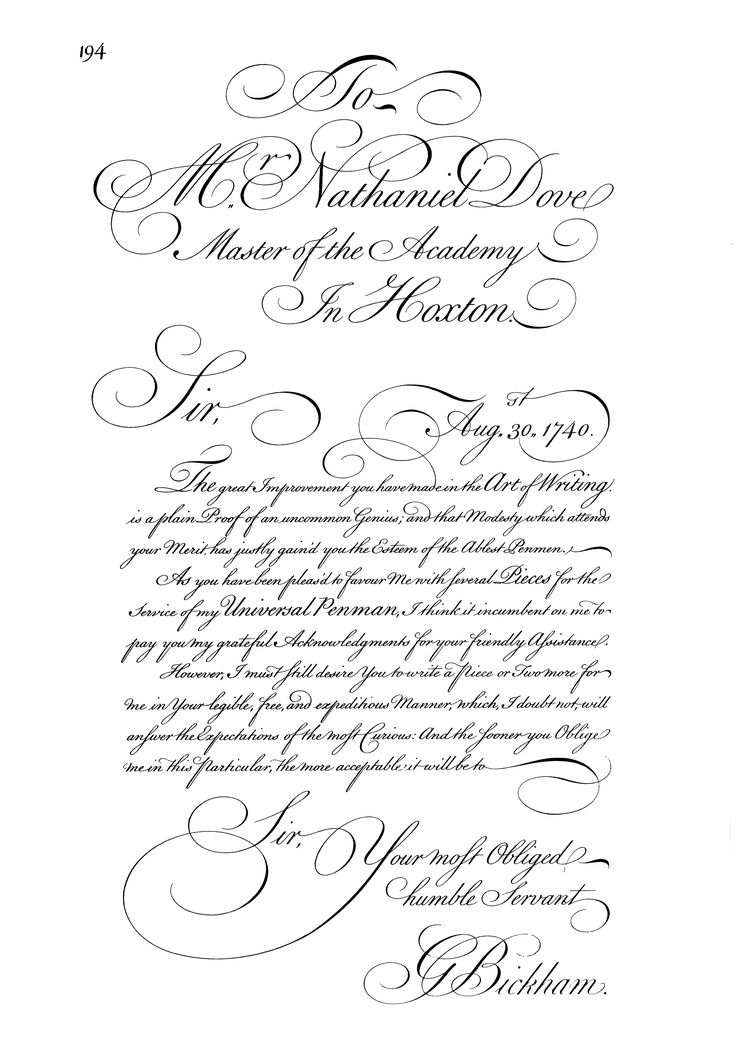 194
To
Mr. Nathaniel Dove
Master of the Academy
In Hoxton.
Sir,
Augst. 30., 1740.
The great Improvement you have made in the Art of Writing.
is a plain Proof of an uncommon Genius; and that Modesty which attends
your Merit has justly gain'd you the Esteem of the Ablest Penmen.
As you have been pleas'd to favour Me with ſeveral Pieces for the
Service of my Universal Penman, I think it incumbent on me to
pay you my grateful Acknowledgments for your friendly Aſsistance.
However, I muſt ſtill desire You to write a Piece or Two more for
me in Your legible, free, and expeditious Manner, which, I doubt not, will
anſwer the Expectations of the moſt Curious: And the ſooner you Oblige
me in this Particular, the more acceptable it will be to
Sir,
Your moſt Obliged
humble Servant
G Bickham.